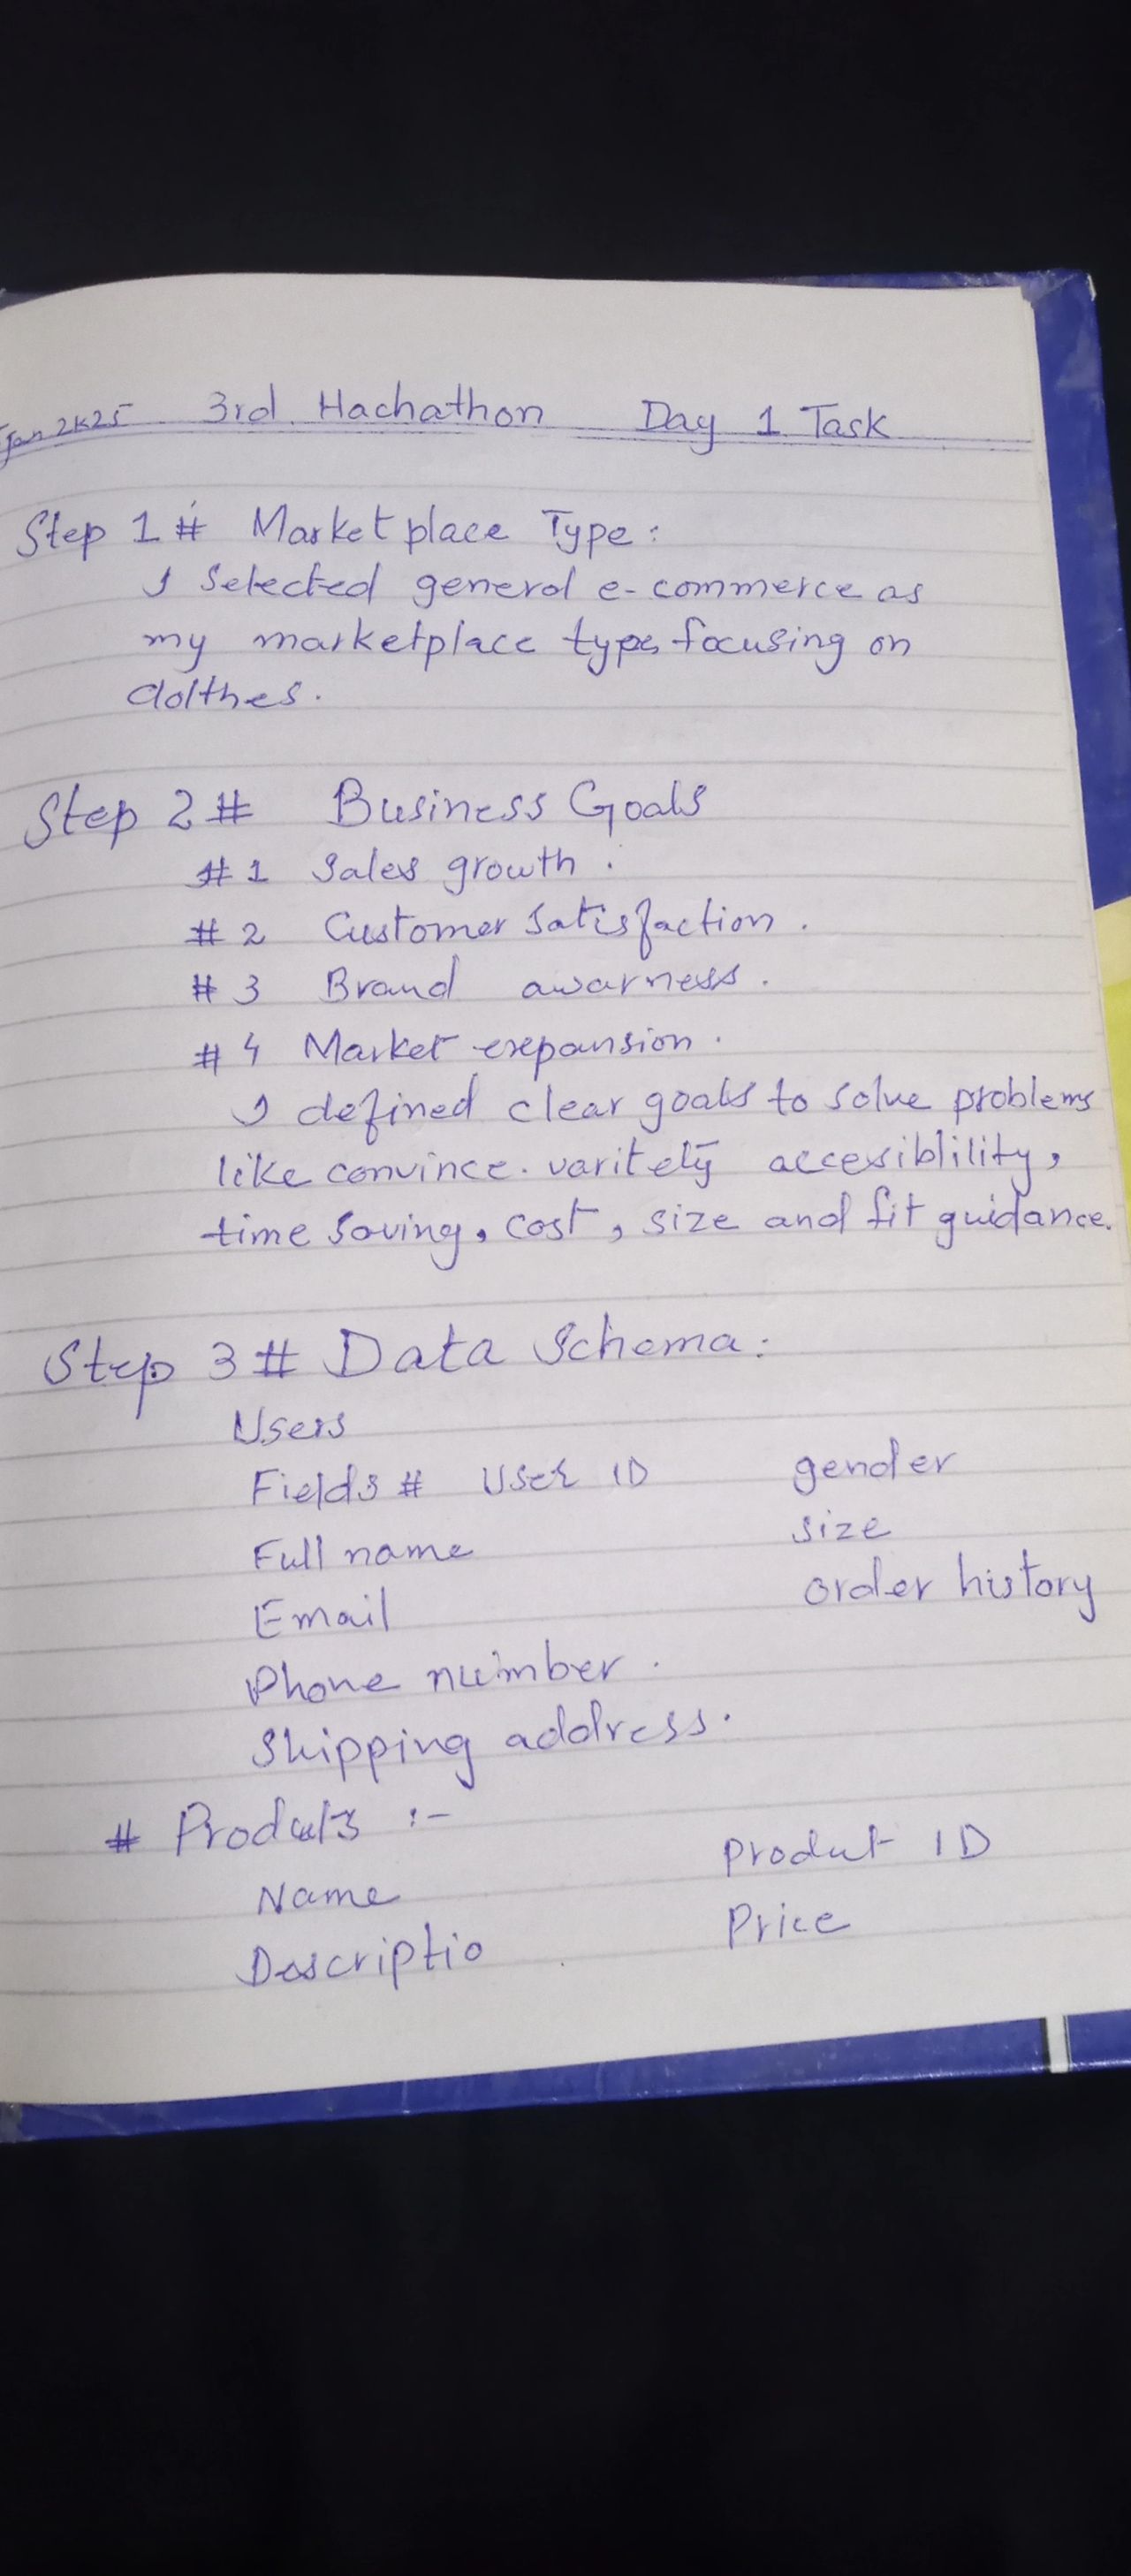 Jan 2K25 3rd Hachathon Day 1 Task
Step 1 # Marketplace Type :
I Selected general e-commerce as
my marketplace type, focusing on
clolthes.
Step 2 # Business Goals
#1 Sales growth .
#2 Customer Satisfaction .
#3 Brand awarness .
#4 Market exepansion .
I defined clear goals to solve problems
like convince. varitety accesiblility,
time saving, cost, size and fit guidance.
Step 3 # Data Schema :
Users
Fields # User ID gender
Full name size
Email order history
Phone number .
Shipping address.
# Produts :-
Name Produt ID
Descriptio Price